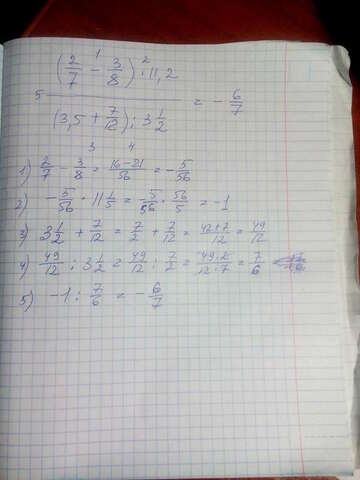 1 2
(2/7 - 3/8) · 11,2
5 ———————— = - 6/7
(3,5 + 7/12) : 3 1/2
3 4
1) 2/7 - 3/8 = 16-21/56 = - 5/56
2) - 5/56 · 11 1/5 = - 5/56 · 56/5 = -1
3) 3 1/2 + 7/12 = 7/2 + 7/12 = 42+7/12 = 49/12
4) 49/12 : 3 1/2 = 49/12 : 7/2 = 49·2/12·7 = 7/6
5) -1 : 7/6 = - 6/7